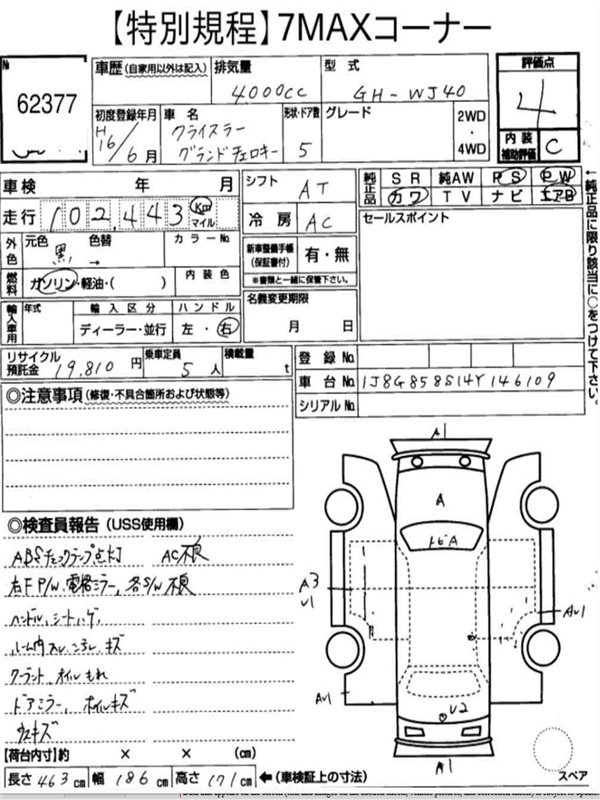 【特別規程】7MAXコーナー
№
62377
車歴(自家用以外は記入)
排気量
4.000CC
型式
GH-WJ40
評価点
4
初度登録年月
H16/6月
車名
クライスラー
グランドチェロキー
形状・ドア数
5
グレード
2WD
・
4WD
内装
補助評価
C
車検 年 月
シフト
AT
純正品
SR 純AW PS PW
カワ TV ナビ エアB
走行
102,443
Km
マイル
冷房
AC
セールスポイント
外色
元色
黒
色替
→
カラーNo
新車整備手帳
(保証書付)
有・無
※書類と一緒に保管下さい。
燃料
ガソリン・軽油・( )
内装色
名義変更期限
月 日
輸入車用
年式
輸入区分
ハンドル
ディーラー・並行
左・右
リサイクル
預託金
19,810円
乗車定員
5人
積載量
t
登録No
車台No
1J8G858S14Y146109
シリアルNo
←純正品に限り該当に○をつけて下さい。
◎注意事項(修復・不具合箇所および状態等)
◎検査員報告(USS使用欄)
ABSチェックランプ点灯 AC不良
右F P/W、電格ミラー、各S/W不良
ハンドル、シートハゲ
ルーム内スレ、コゲ、キズ
クーラント、オイルもれ
ドアミラー、ホイルキズ
ガラスキズ
【荷台内寸】約 × × (cm)
長さ 463 cm 幅 186 cm 高さ 171 cm ←(車検証上の寸法)
A1
A
トビA
A3
U1
AU1
AU1
U2
A1
スペア